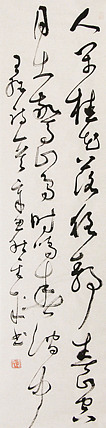 人閒桂花落夜靜春山空
月出驚山鳥時鳴春澗中
王維詩一首辛丑秋書